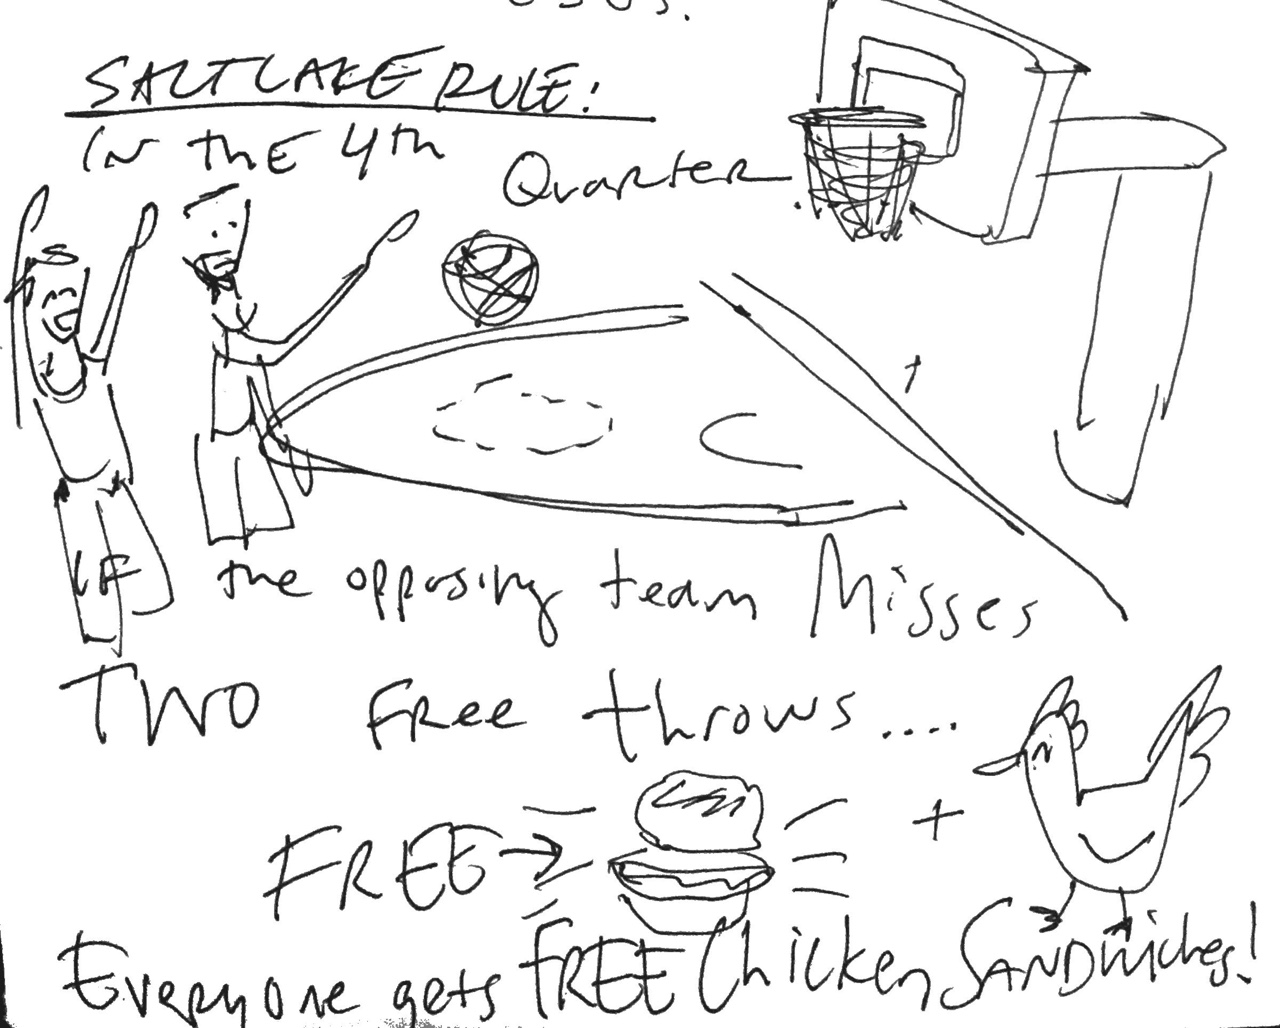 SALT LAKE RULE:
IN THE 4th
Quarter
IF the opposing team Misses
TWO FREE throws....
FREE → +
Everyone gets FREE Chicken SANDwiches!